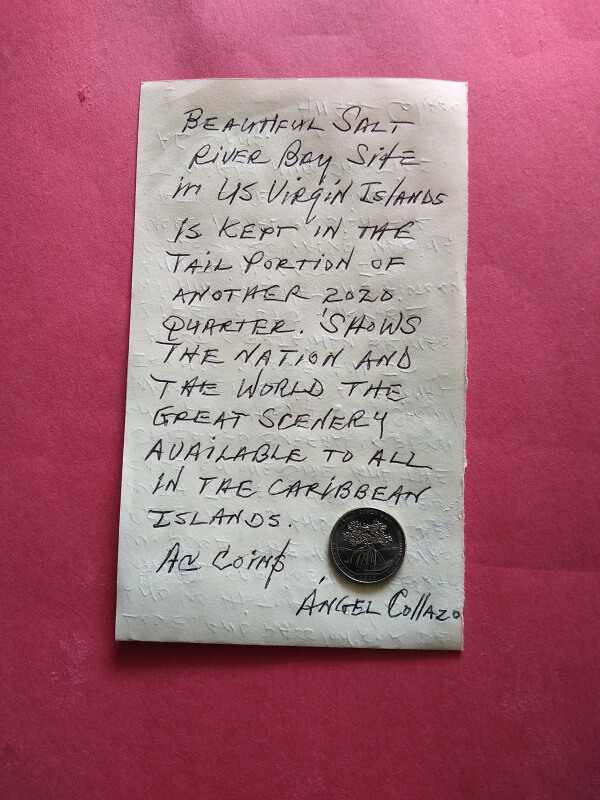 BEAUTIFUL SALT
RIVER BAY SITE
in US VIRGIN ISLANDS
IS KEPT IN THE
TAIL PORTION OF
ANOTHER 2020
QUARTER. SHOWS
THE NATION AND
THE WORLD THE
GREAT SCENERY
AVAILABLE TO ALL
IN THE CARIBBEAN
ISLANDS.
AC COINS
ÁNGEL COLLAZO